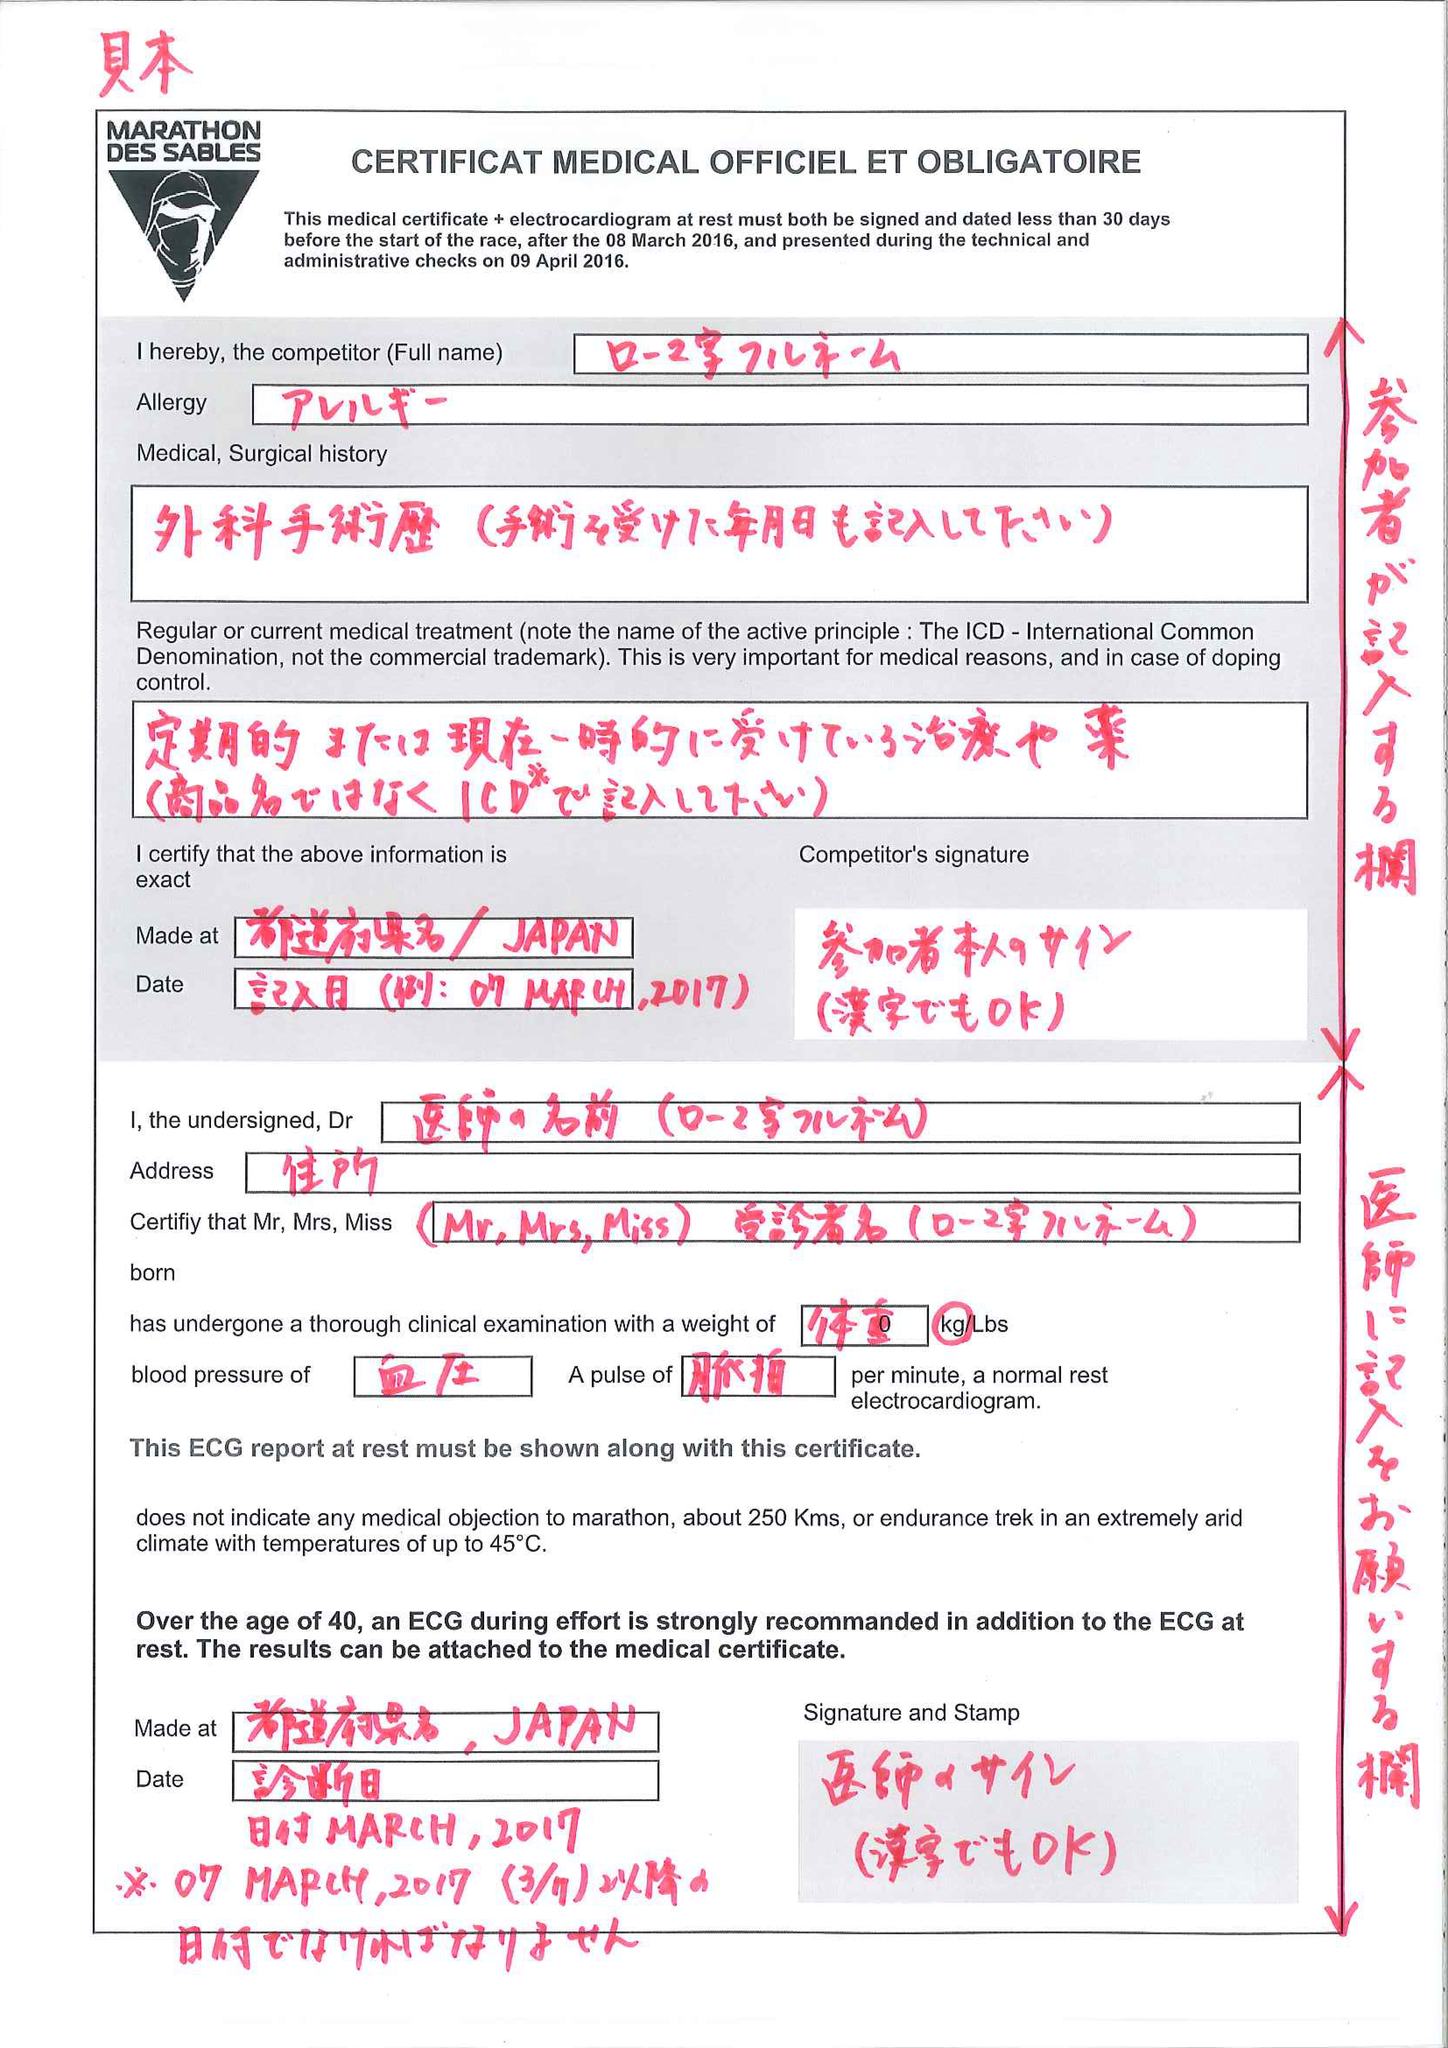 見本
MARATHON
DES SABLES
CERTIFICAT MEDICAL OFFICIEL ET OBLIGATOIRE
This medical certificate + electrocardiogram at rest must both be signed and dated less than 30 days
before the start of the race, after the 08 March 2016, and presented during the technical and
administrative checks on 09 April 2016.
I hereby, the competitor (Full name) ローマ字フルネーム
Allergy アレルギー
Medical, Surgical history
外科手術歴 (手術を受けた年月日も記入して下さい)
Regular or current medical treatment (note the name of the active principle : The ICD - International Common
Denomination, not the commercial trademark). This is very important for medical reasons, and in case of doping
control.
定期的 または 現在一時的に受けている治療や薬
(商品名ではなく ICD※で記入して下さい)
I certify that the above information is
exact
Competitor's signature
Made at 都道府県名/ JAPAN
Date 記入日 (例: 07 MARCH,2017)
参加者本人のサイン
(漢字でもOK)
参加者が記入する欄
I, the undersigned, Dr 医師の名前 (ローマ字フルネーム)
Address 住所
Certifiy that Mr, Mrs, Miss (Mr, Mrs, Miss) 受診者名 (ローマ字フルネーム)
born
has undergone a thorough clinical examination with a weight of 体重 0 kg/Lbs
blood pressure of 血圧 A pulse of 脈拍 per minute, a normal rest
electrocardiogram.
This ECG report at rest must be shown along with this certificate.
does not indicate any medical objection to marathon, about 250 Kms, or endurance trek in an extremely arid
climate with temperatures of up to 45°C.
Over the age of 40, an ECG during effort is strongly recommanded in addition to the ECG at
rest. The results can be attached to the medical certificate.
Made at 都道府県名, JAPAN
Date 診断日
日付 MARCH, 2017
※ 07 MARCH,2017 (3/7) 以降の
日付でなければなりません
Signature and Stamp
医師のサイン
(漢字でもOK)
医師に記入をお願いする欄